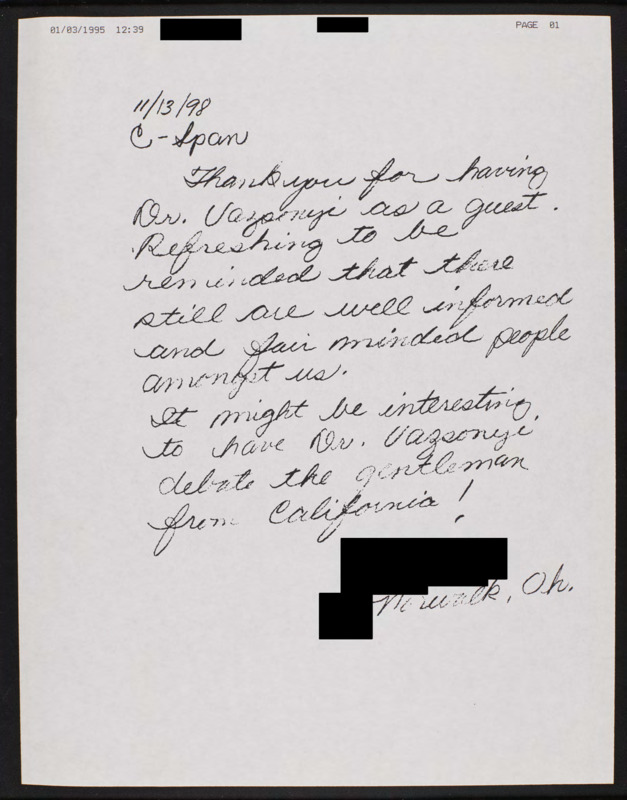 01/03/1995 12:39 PAGE 01
11/13/98
C-Span
Thank you for having
Dr. Vazsonyi as a guest.
Refreshing to be
reminded that there
still are well informed
and fair minded people
amongst us.
It might be interesting
to have Dr. Vazsonyi
debate the gentleman
from California!
Norwalk, Oh.